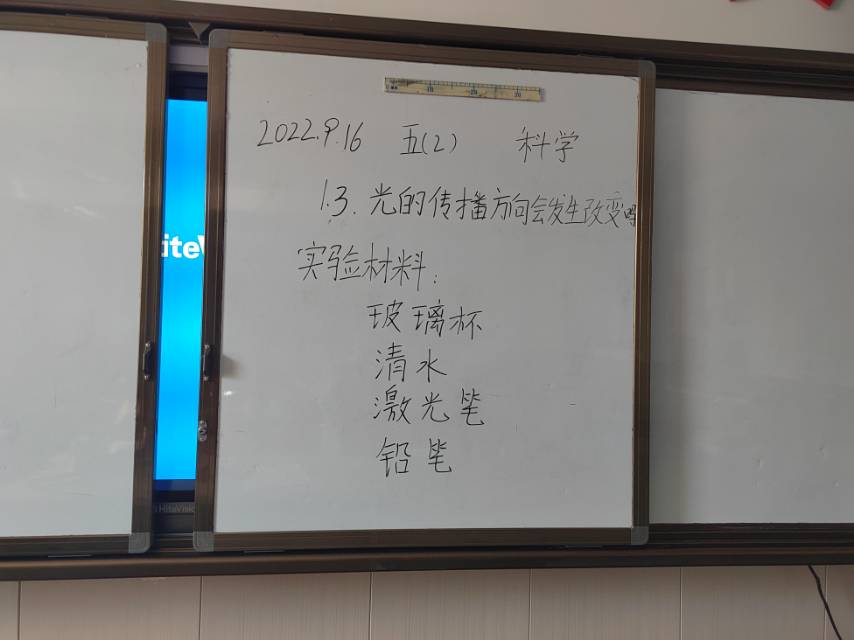 2022.9.16 五(2) 科学
1.3. 光的传播方向会发生改变吗
实验材料:
玻璃杯
清水
激光笔
铅笔
HiteVision